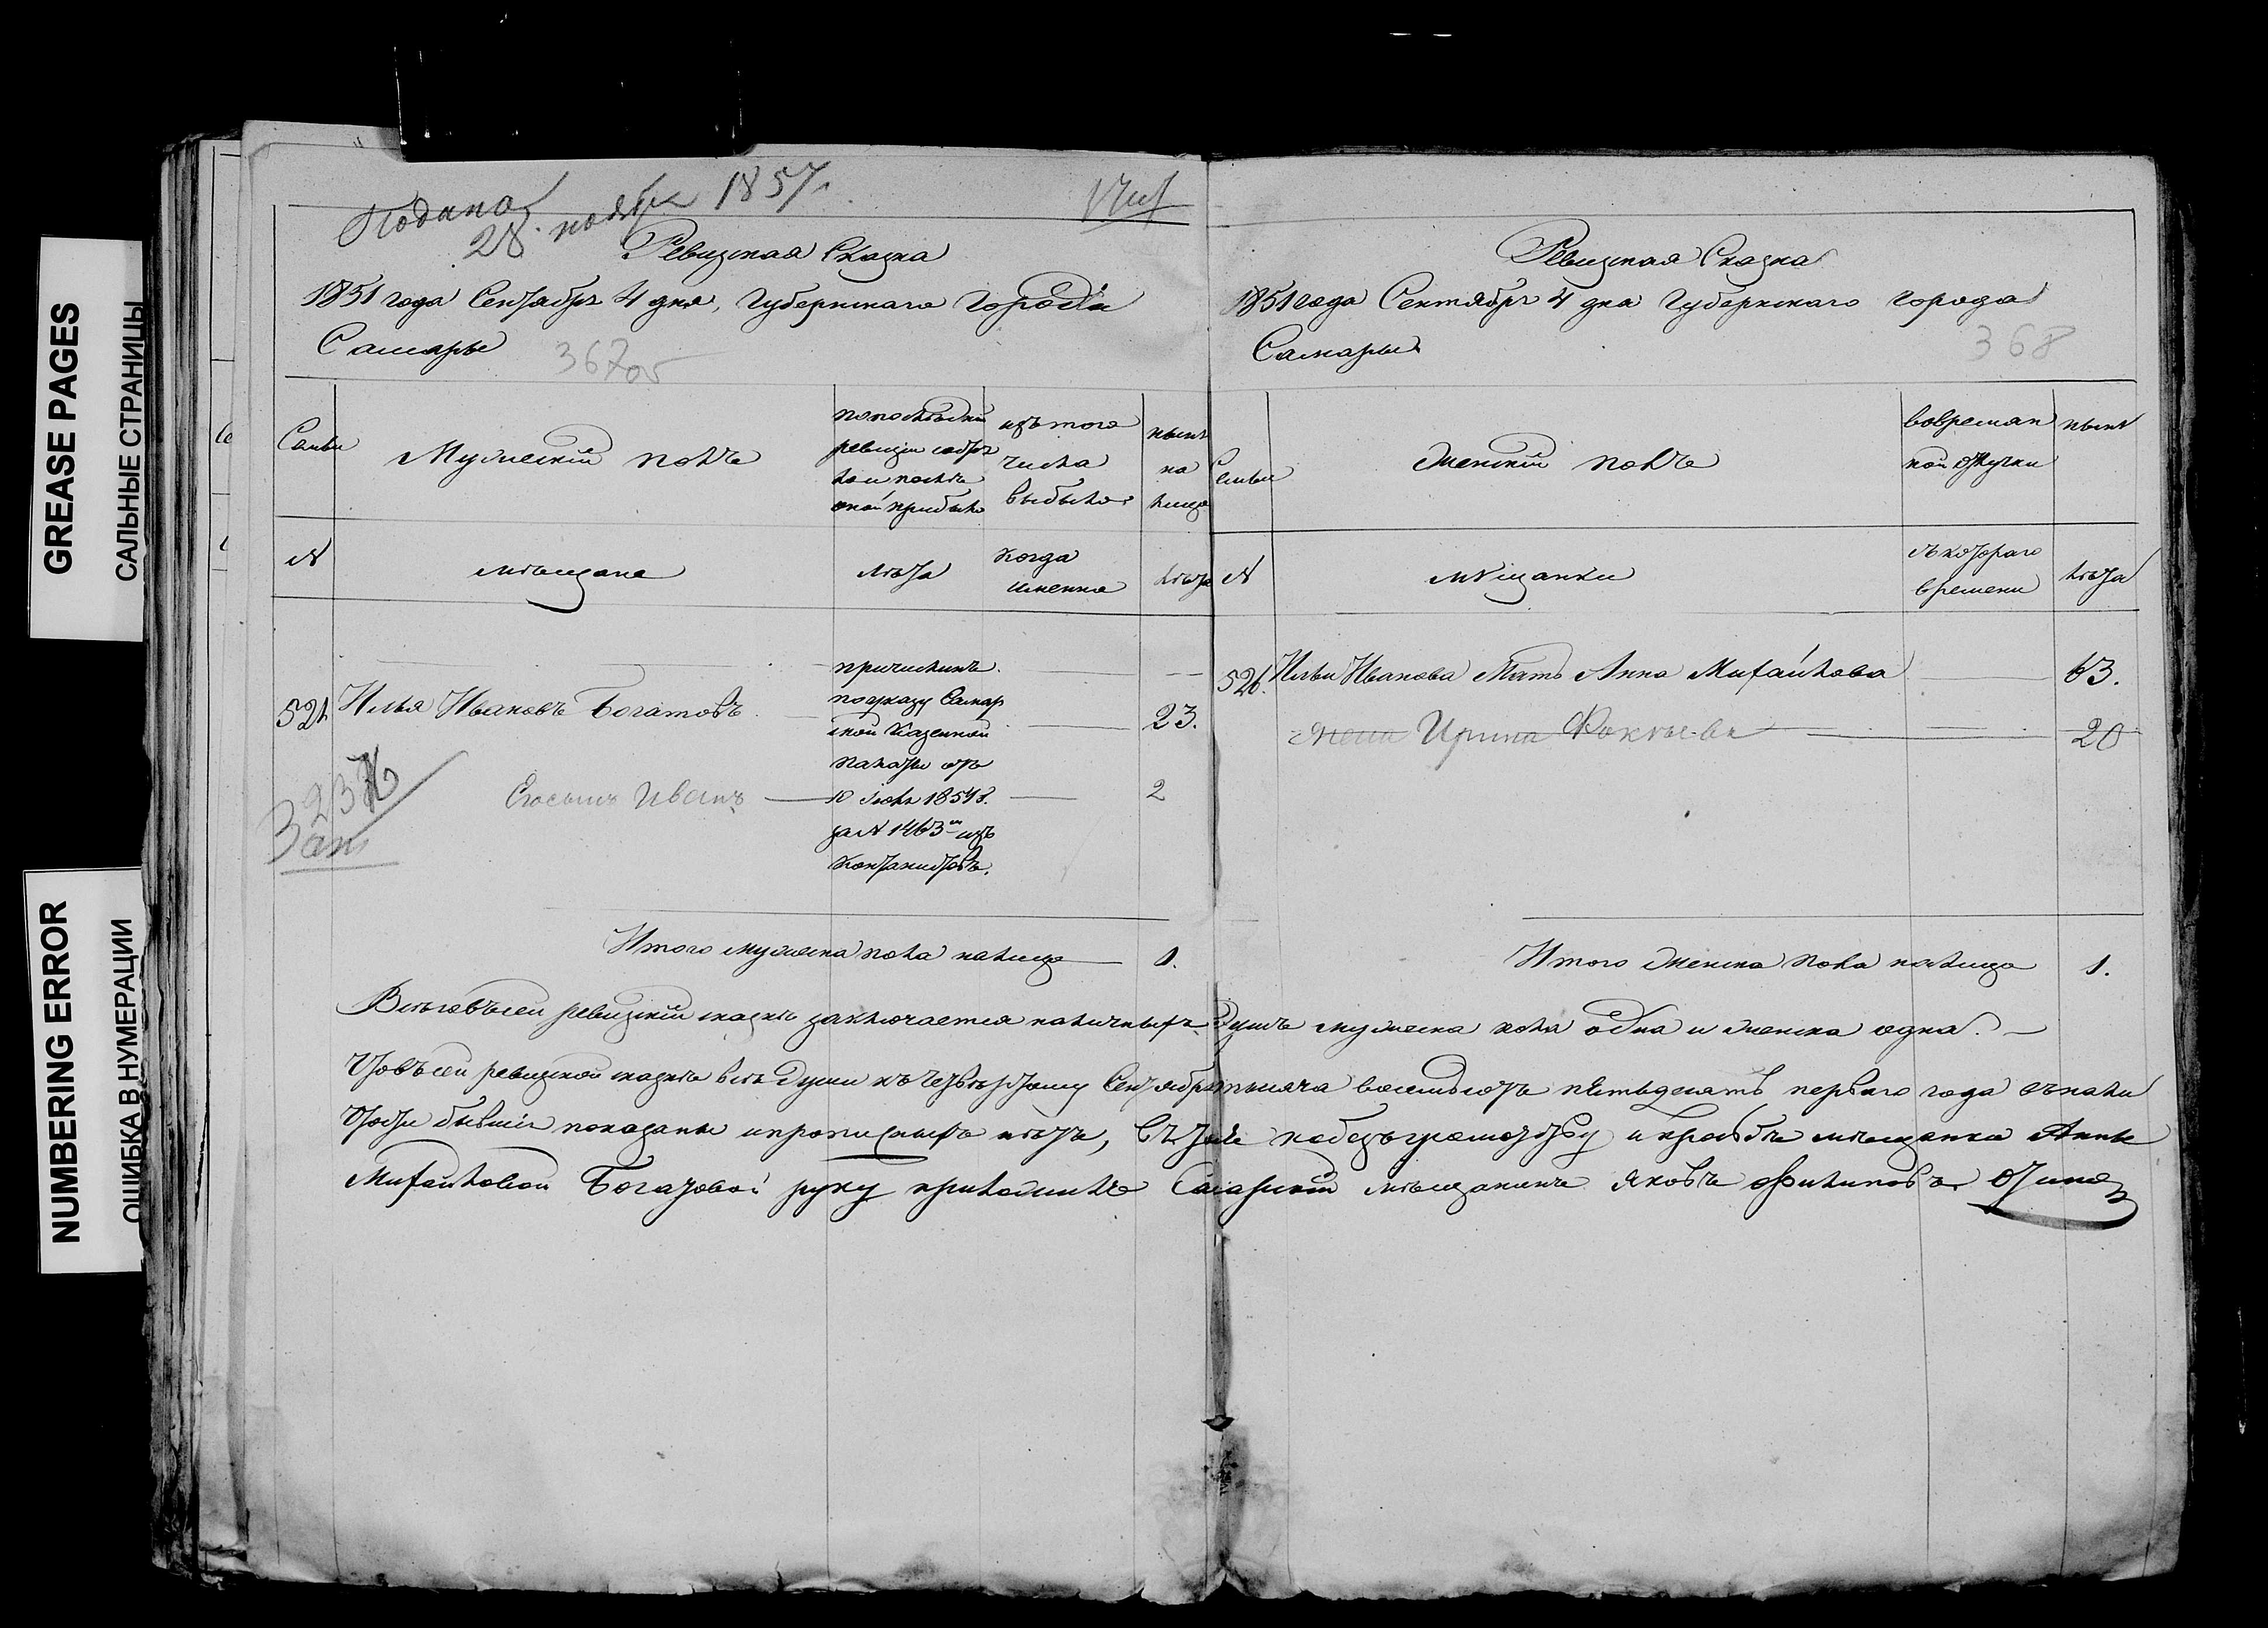 GREASE PAGES
САЛЬНЫЕ СТРАНИЦЫ
NUMBERING ERROR
ОШИБКА В НУМЕРАЦИИ
Подана
28 ноября 1857.
Ревизская Сказка
1851 года Сентября 4 дня, Губернскаго Города
Самары
367об
Семьи
Мужескій полъ
по последней
ревизіи состоя
ло и после
оной прибыло
изъ того
числа
выбыло
ныне
на
лицо
N
мѣщане
Лѣта
когда
именно
лѣта
521
Илья Ивановъ Богатовъ
причисленъ
по указу Самар
ской Казенной
палаты отъ
10 1851
за N 1463м изъ
кантонистовъ.
23.
Егосынъ Иванъ
2
323
Итого мужеска пола налицо 1.
Ревизская Сказка
1851 года Сентября 4 дня Губернскаго города
Самары
368
Семьи
Женскій полъ
вовременной
отлучки
ныне
N
мѣщанки
съ котораго
времени
лѣта
521.
Ильи Иванова Мать Анна Михайлова
63.
Жена Ирина
20
Итого женска пола налицо 1.
Всего въ сей ревизской сказке заключается наличныхъ душъ мужеска пола одна и женска одна.
Что въ сей ревизской сказке все души къ четвертому Сентября тысяча восемьсотъ пятьдесятъ перваго года въ нали
чности бывшіе показаны и прописныхъ нетъ, въ томъ по безграмотству и прозьбе мѣщанки Анны
Михайловой Богатовой руку приложилъ Самарский мѣщанинъ Яковъ Филиповъ